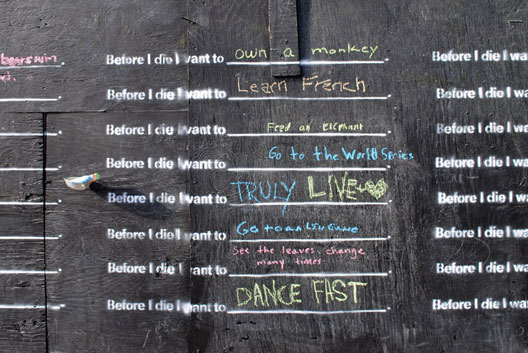 Before I die I want to own a monkey. Before I die I wa
Before I die I want to Learn French. Before I die I wa
Before I die I want to Feed an Elephant. Before I die I wa
Before I die I want to Go to the World Series Before I die I wa
Before I die I want to TRULY LIVE. Before I die I wa
Before I die I want to Go to an Before I die I wa
Before I die I want to See the leaves change
many times. Before I die I wa
Before I die I want to DANCE FAST. Before I die I wa